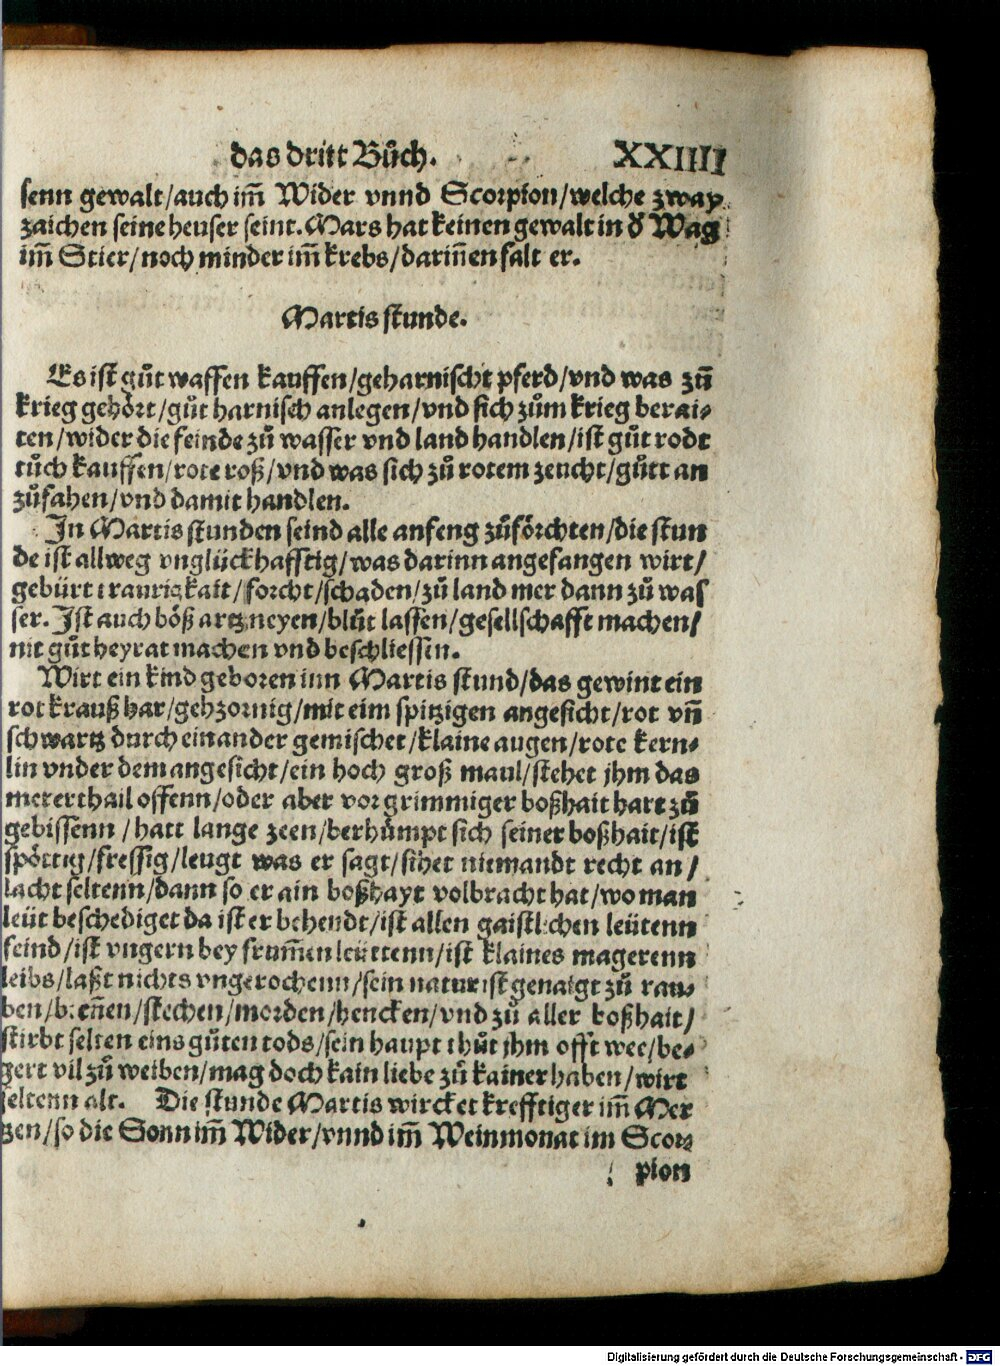 das dritt Bůch. XXIIII
senn gewalt/auch im̃ Wider vnnd Scorpion/welche zway
zaichen seine heuser seint. Mars hat keinen gewalt in d̕ Wag
im̃ Stier/noch minder im̃ krebs/darin̄en falt er.
Martis stunde.
Es ist gůt waffen kauffen/geharnischt pferd/vnd was zů
krieg gehört/gůt harnisch anlegen/vnd sich zům krieg berai⸗
ten/wider die feinde zů wasser vnd land handlen/ist gůt rodt
tůch kauffen/rote roß/vnd was sich zů rotem zeucht/gůtt an
zůfahen/vnd damit handlen.
In Martis stunden seind alle anfeng zůförchten/die stun
de ist allweg vnglückhafftig/was darinn angefangen wirt/
gebürt traurigkait/forcht/schaden/zů land mer dann zů was
ser. Ist auch böß artzneyen/blůt lassen/gesellschafft machen/
nit gůt heyrat machen vnd beschliessen.
Wirt ein kind geboren inn Martis stund/das gewint ein
rot krauß har/gehzornig/mit eim spitzigen angesicht/rot vñ
schwartz durch einander gemischet/klaine augen/rote kern⸗
lin vnder dem angesicht/ein hoch groß maul/stehet jhm das
merer thail offenn/oder aber vor grimmiger boßhait hart zů
gebissenn/hatt lange zeen/berhůmpt sich seiner boßhait/ist
spöttig/fressig/leugt was er sagt/sihet niemandt recht an/
lacht seltenn/dann so er ain boßhayt volbracht hat/wo man
leüt beschediget da ist er behendt/ist allen gaistlichen leütenn
feind/ist vngern bey frum̃en leüttenn/ist klaines magerenn
leibs/laßt nichts vngerochenn/sein natur ist genaigt zů rau⸗
ben/breñen/stechen/morden/hencken/vnd zů aller boßhait/
stirbt selten eins gůten tods/sein haupt thůt jhm offt wee/be⸗
gert vil zů weiben/mag doch kain liebe zů kainer haben/wirt
seltenn alt. Die stunde Martis wircket krefftiger im̃ Mer
tzen/so die Sonn im̃ Wider/vnnd im̃ Weinmonat im Scor⸗
pion
Digitalisierung gefördert durch die Deutsche Forschungsgemeinschaft - DFG